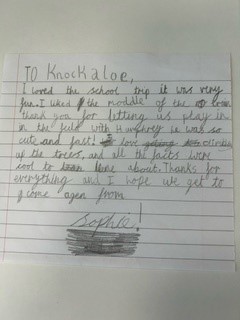 TO Knockaloe,
I loved the school trip it was very
fun. I liked the moddle of the town
thank you for letting us play in
in the field with Humphrey he was so
cute and fast! love climbing
up the trees, and all the facts were
cool to lerne about. Thanks for
everything and I hope we get to
come agen from
Sophie!